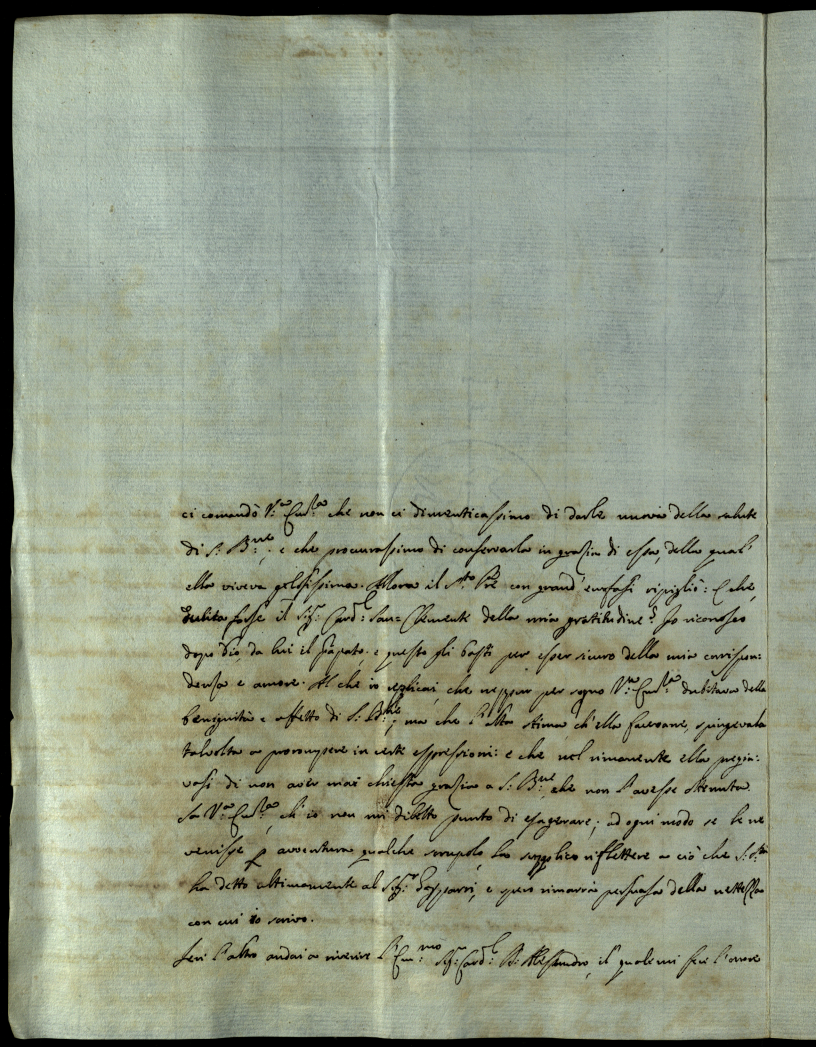 ci comandò V.ra Em.za che non ci dimenticassimo di darle nuova della salute
di S. B.ne; e che procurassimo di conservarla in grazia di essa, della qual'
ella viveva gelosissima. Allora il S.to Pre con grand'enfasi ripigliò: E che,
dubita forse il Sig.r Card.l San Clemente della mia gratitudine? Io riconosco
dopo Dio, da lui il Papato: e questo gli basti per esser sicuro della mia corrispon:
denza e amore. Al che io replicai, che neppur per sogno V.ra Em.za dubitava della
benignità e affetto di S. B.ne, ma che l'alta stima ch'ella facevane, spingevala
talvolta a prorompere in certe espressioni: e che nel rimanente ella pregia:
vasi di non aver mai chiesta grazia a S. B.ne, che non l'avesse ottenuta.
Sa V.ra Em.za, ch'io non mi diletto punto di esagerare; ad ogni modo se le ne
venisse p avventura qualche scrupolo la supplico riflettere a ciò che S. S.tà
ha detto ultimamente al Sig.r Gasparri, e quivi rimarrà persuasa della nettezza
con cui io scrivo.
Ieri l'altro andai a riverire l'Em.mo Sig.r Card.l Alessandro, il quale mi feci l'onore